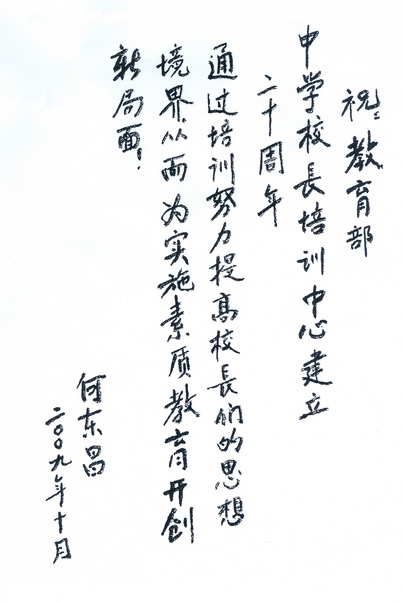 祝：教育部
中学校長培训中心建立
二十周年
通过培训努力提高校長们的思想
境界从而为实施素质教育开创
新局面！
何东昌
二〇〇九年十月